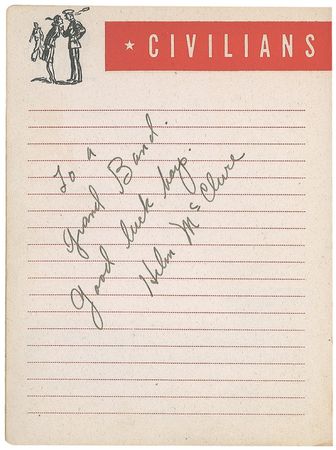 ★ CIVILIANS
To a
Grand Band.
Good luck boys.
Helen McClure